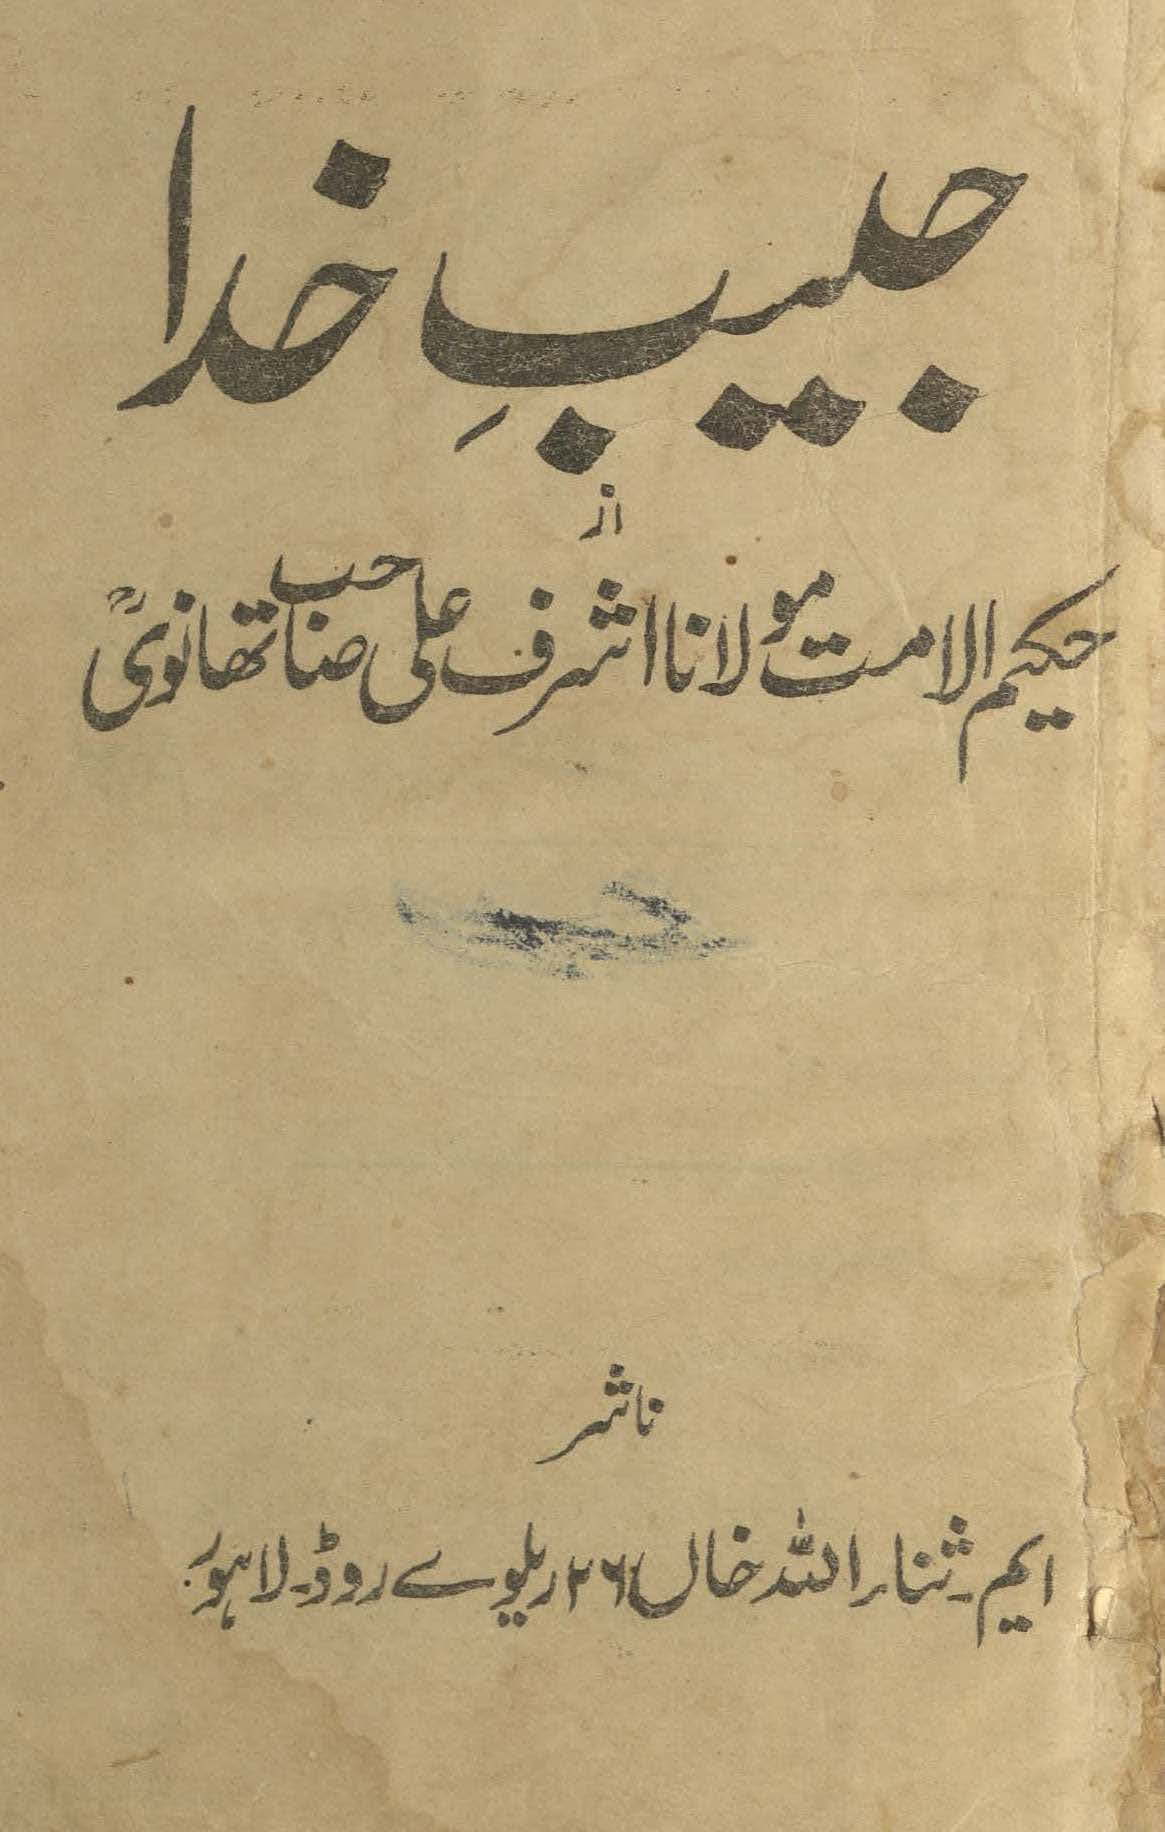 حبیبِ خدا
از
حکیم الامت مولانا اشرف علی صاحب تھانویؒ
ناشر
ایم۔ ثناء اللہ خاں ۲۶ ریلوے روڈ۔ لاہور